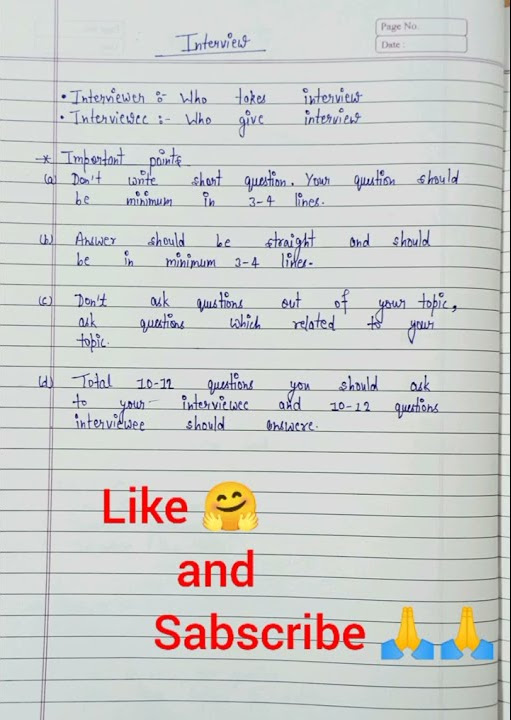 Interview
Page No.
Date:
• Interviewer :- Who takes interview
• Interviewee :- Who give interview
* Important points
(a) Don't write short question. Your question should
be minimum in 3-4 lines.
(b) Answer should be straight and should
be in minimum 3-4 lines.
(c) Don't ask questions out of your topic,
ask questions which related to your
topic.
(d) Total 10-12 questions you should ask
to your interviewee and 10-12 questions
interviewee should answere.
Like 🤗
and
Sabscribe 🙏🙏